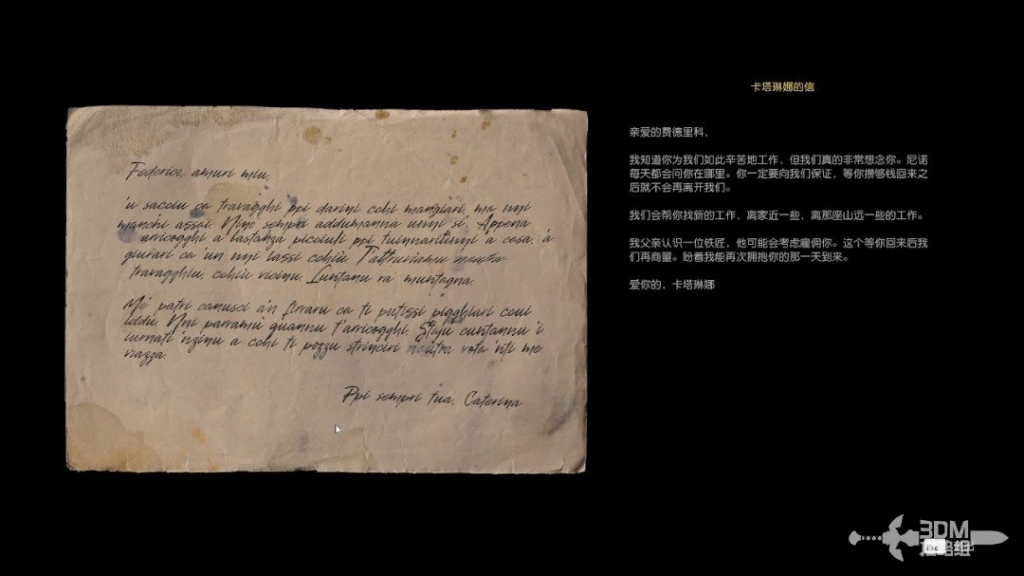 Federico, amuri miu,
'u sacciu ca travagghi ppi darini cchi mangiari, ma nni
manchi assai. Nino sempri addumanna unni si. Appena
arricogghi a bastanza picciuli ppi
a casa, 'a
giurari ca un nni lassi cchiù.
travagghiu, cchiù vicinu. Luntanu ra muntagna.
Mè patri canusci a'n firraru ca ti putissi pigghiari cu
iddu. Nni parramu quannu t'arricogghi. Staju cuntannu 'i
iurnati 'nzinu a cchi ti pozzu strinciri
vota 'nti me
razza.
Ppi sempri tua, Caterina
卡塔琳娜的信
亲爱的费德里科，
我知道你为我们如此辛苦地工作，但我们真的非常想念你。尼诺
每天都会问你在哪里。你一定要向我们保证，等你攒够钱回来之
后就不会再离开我们。
我们会帮你找新的工作，离家近一些，离那座山远一些的工作。
我父亲认识一位铁匠，他可能会考虑雇佣你。这个等你回来后我
们再商量。盼着我能再次拥抱你的那一天到来。
爱你的，卡塔琳娜
3DM